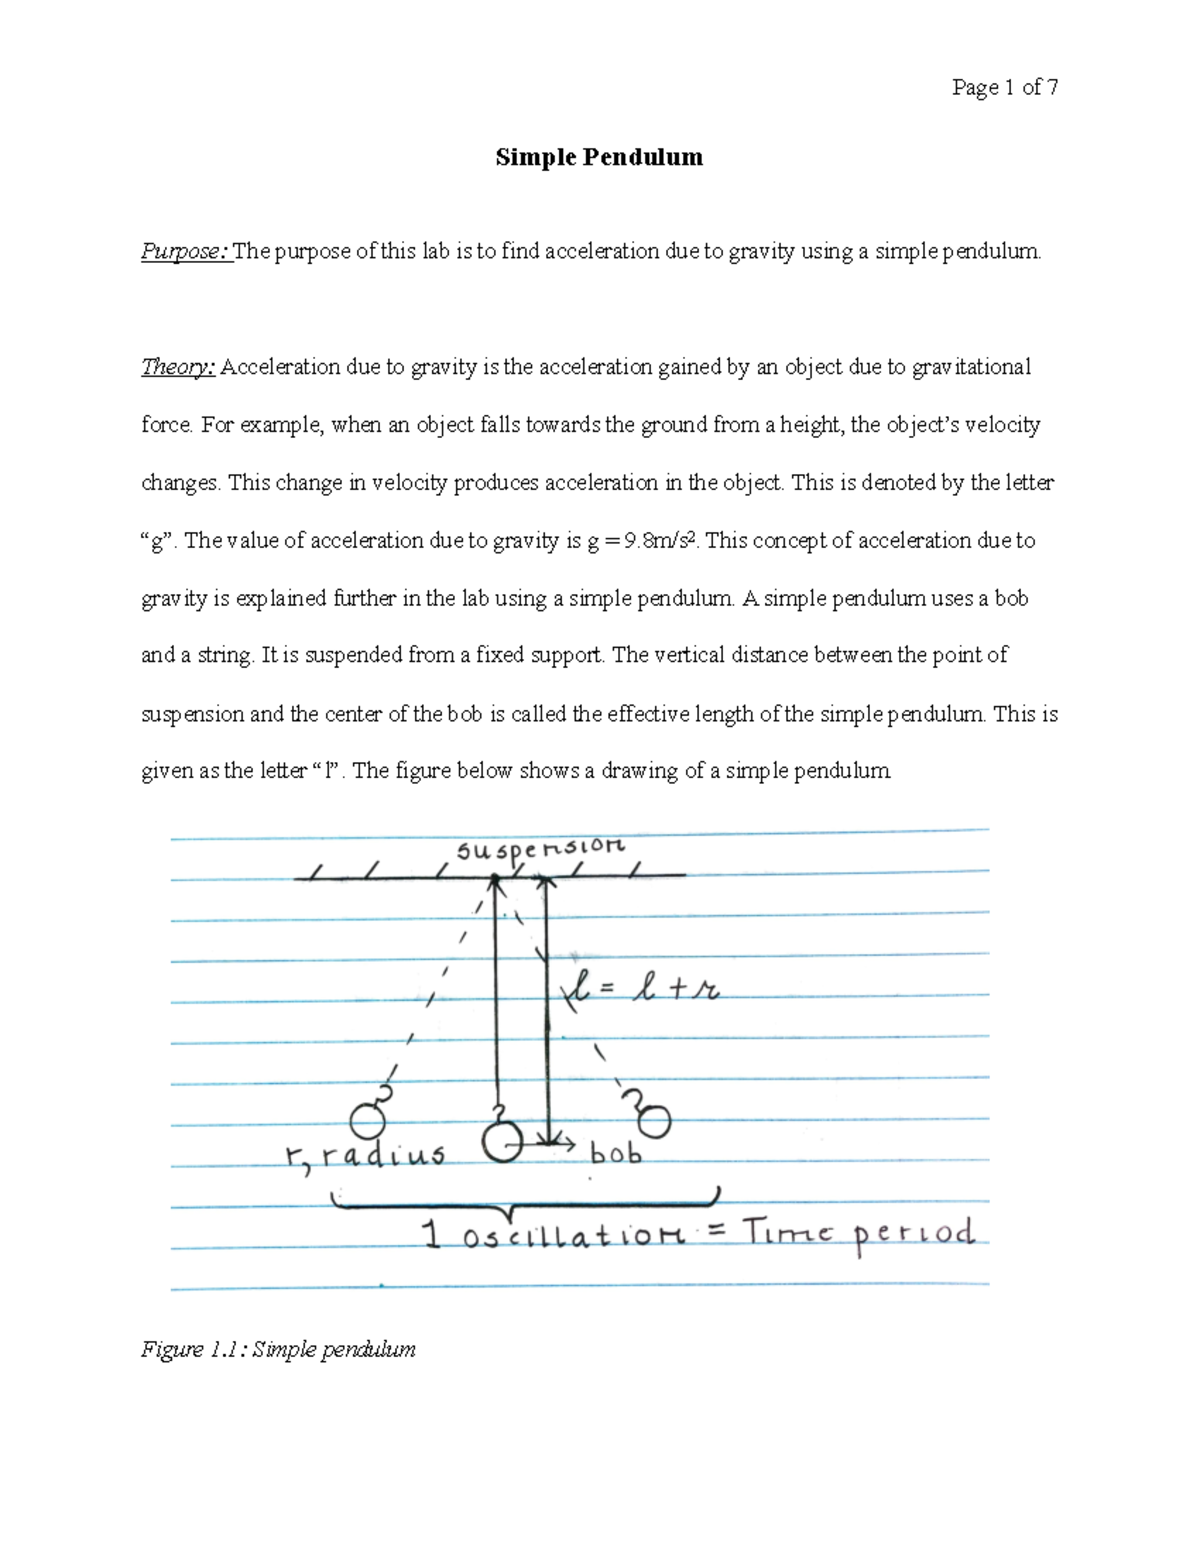 Page 1 of 7
Simple Pendulum
Purpose: The purpose of this lab is to find acceleration due to gravity using a simple pendulum.
Theory: Acceleration due to gravity is the acceleration gained by an object due to gravitational
force. For example, when an object falls towards the ground from a height, the object’s velocity
changes. This change in velocity produces acceleration in the object. This is denoted by the letter
“g”. The value of acceleration due to gravity is g = 9.8m/s². This concept of acceleration due to
gravity is explained further in the lab using a simple pendulum. A simple pendulum uses a bob
and a string. It is suspended from a fixed support. The vertical distance between the point of
suspension and the center of the bob is called the effective length of the simple pendulum. This is
given as the letter “l”. The figure below shows a drawing of a simple pendulum
suspension
l = l + r
r, radius
bob
1 oscillation = Time period
Figure 1.1: Simple pendulum